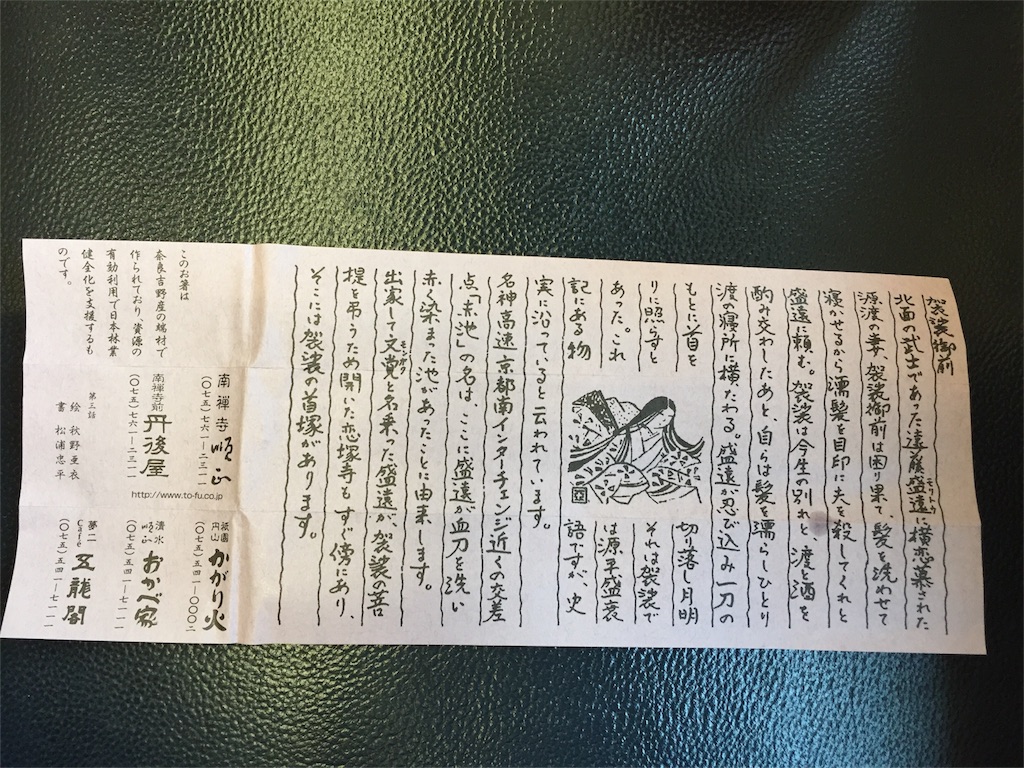 袈裟御前
北面の武士であった遠藤盛遠に横恋慕された
モリトウ
源渡の妻、袈裟御前は困り果て、髪を洗わせて
寝かせるから濡髪を目印に夫を殺してくれと
盛遠に頼む。袈裟は今生の別れと渡と酒を
酌み交わしたあと、自らは髪を濡らしひとり
渡の寝所に横たわる。盛遠が忍び込み一刀の
もとに首を
切り落し月明
りに照らすと
それは袈裟で
あった。これ
は源平盛衰
記にある物
語ですが、史
実に沿っていると云われています。
名神高速京都南インターチェンジ近くの交差
点「赤池」の名は、ここに盛遠が血刀を洗い
赤く染まった池があったことに由来します。
出家して文覚と名乗った盛遠が、袈裟の菩
モンガク
提を弔うため開いた恋塚寺もすぐ傍にあり、
そこには袈裟の首塚があります。
このお箸は
奈良吉野産の端材で
作られており、資源の
有効利用で日本林業
健全化を支援するも
のです。
第三話
絵 秋野亜衣
書 松浦忠平
南禅寺 順正
(〇七五)七六一-二三一一
南禅寺前 丹後屋
(〇七五)七六一-二三一一
http://www.to-fu.co.jp
祇園円山 かがり火
(〇七五)五四一-〇〇〇二
清水順正 おかべ家
(〇七五)五四一-七一一一
夢二Café 五龍閣
(〇七五)五四一-七一一一